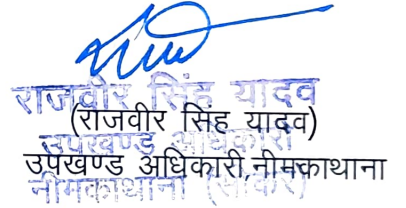 राजवीर सिंह यादव
(राजवीर सिंह यादव)
उपखण्ड अधिकारी
उपखण्ड अधिकारी,नीमकाथाना
नीमकाथाना (सीकर)